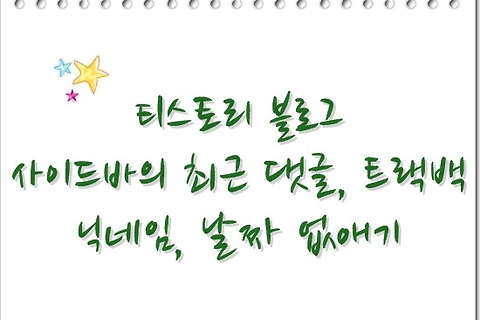 티스토리 블로그
사이드바의 최근 댓글, 트랙백
닉네임, 날짜 없애기